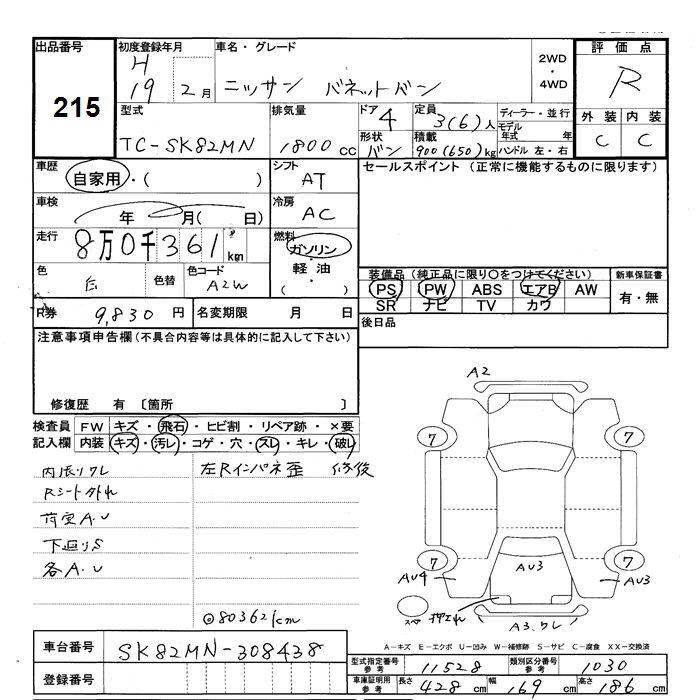 出品番号
215
初度登録年月
H
19 2月
車名・グレード
ニッサン バネットバン
2WD
・
4WD
評価点
R
外装 内装
C C
型式
TC-SK82MN
排気量
1800 cc
ドア
4
形状
バン
定員
3(6)人
積載
900(650)kg
ディーラー・並行
モデル
年式 年
ハンドル 左・右
車歴
自家用・( )
シフト
AT
車検
年 月( 日)
冷房
AC
走行
8万0千361km
燃料
ガソリン
・
軽油
( )
色
白
色替
色コード
A2W
R券 9,830円
名変期限 月 日
セールスポイント (正常に機能するものに限ります)
装備品(純正品に限り〇をつけてください)
PS PW ABS エアB AW
SR ナビ TV カワ
新車保証書
有・無
後日品
注意事項申告欄(不具合内容等は具体的に記入して下さい)
修復歴 有 〔箇所 〕
検査員
記入欄
FW キズ・飛石・ヒビ割・リペア跡・×要
内装 キズ・汚レ・コゲ・穴・スレ・キレ・破レ
内張りワレ
Rシート外れ
荷室A.U
下廻りS
各A.U
左Rインパネ歪 修後
◎80362km
A2
7 7
7 7
AU4
AU3
AU3
スペ 押され
A3.ワレ
A−キズ E−エクボ U−凹み W−補修跡 S−サビ C−腐食 XX−交換済
車台番号
SK82MN-308438
登録番号
型式指定番号
参考
11528
類別区分番号
参考
1030
車庫証明用
参考
長さ
428 cm
幅
169 cm
高さ
186 cm